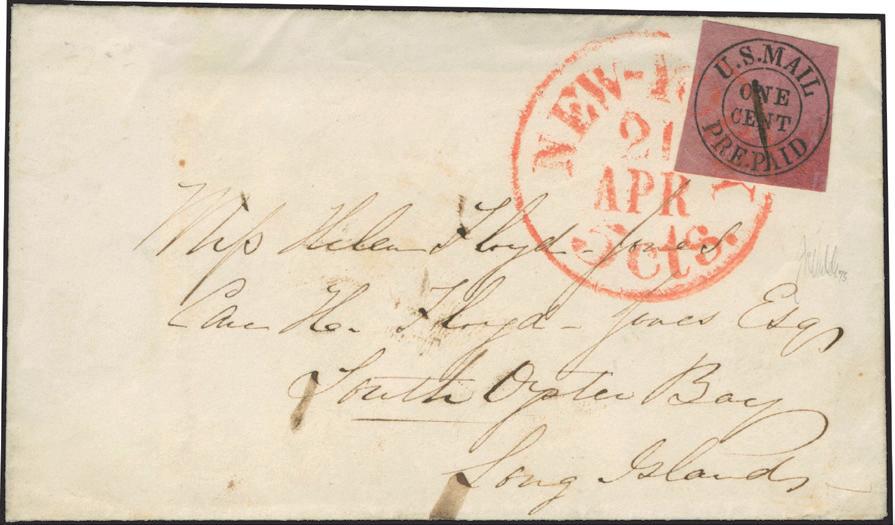 U.S. MAIL
ONE
CENT
PRE.PAID
NEW-
21
APR
5 cts.
Miss Helen Floyd-Jones
Care H. Floyd-Jones Esq
South Oyster Bay
Long Island